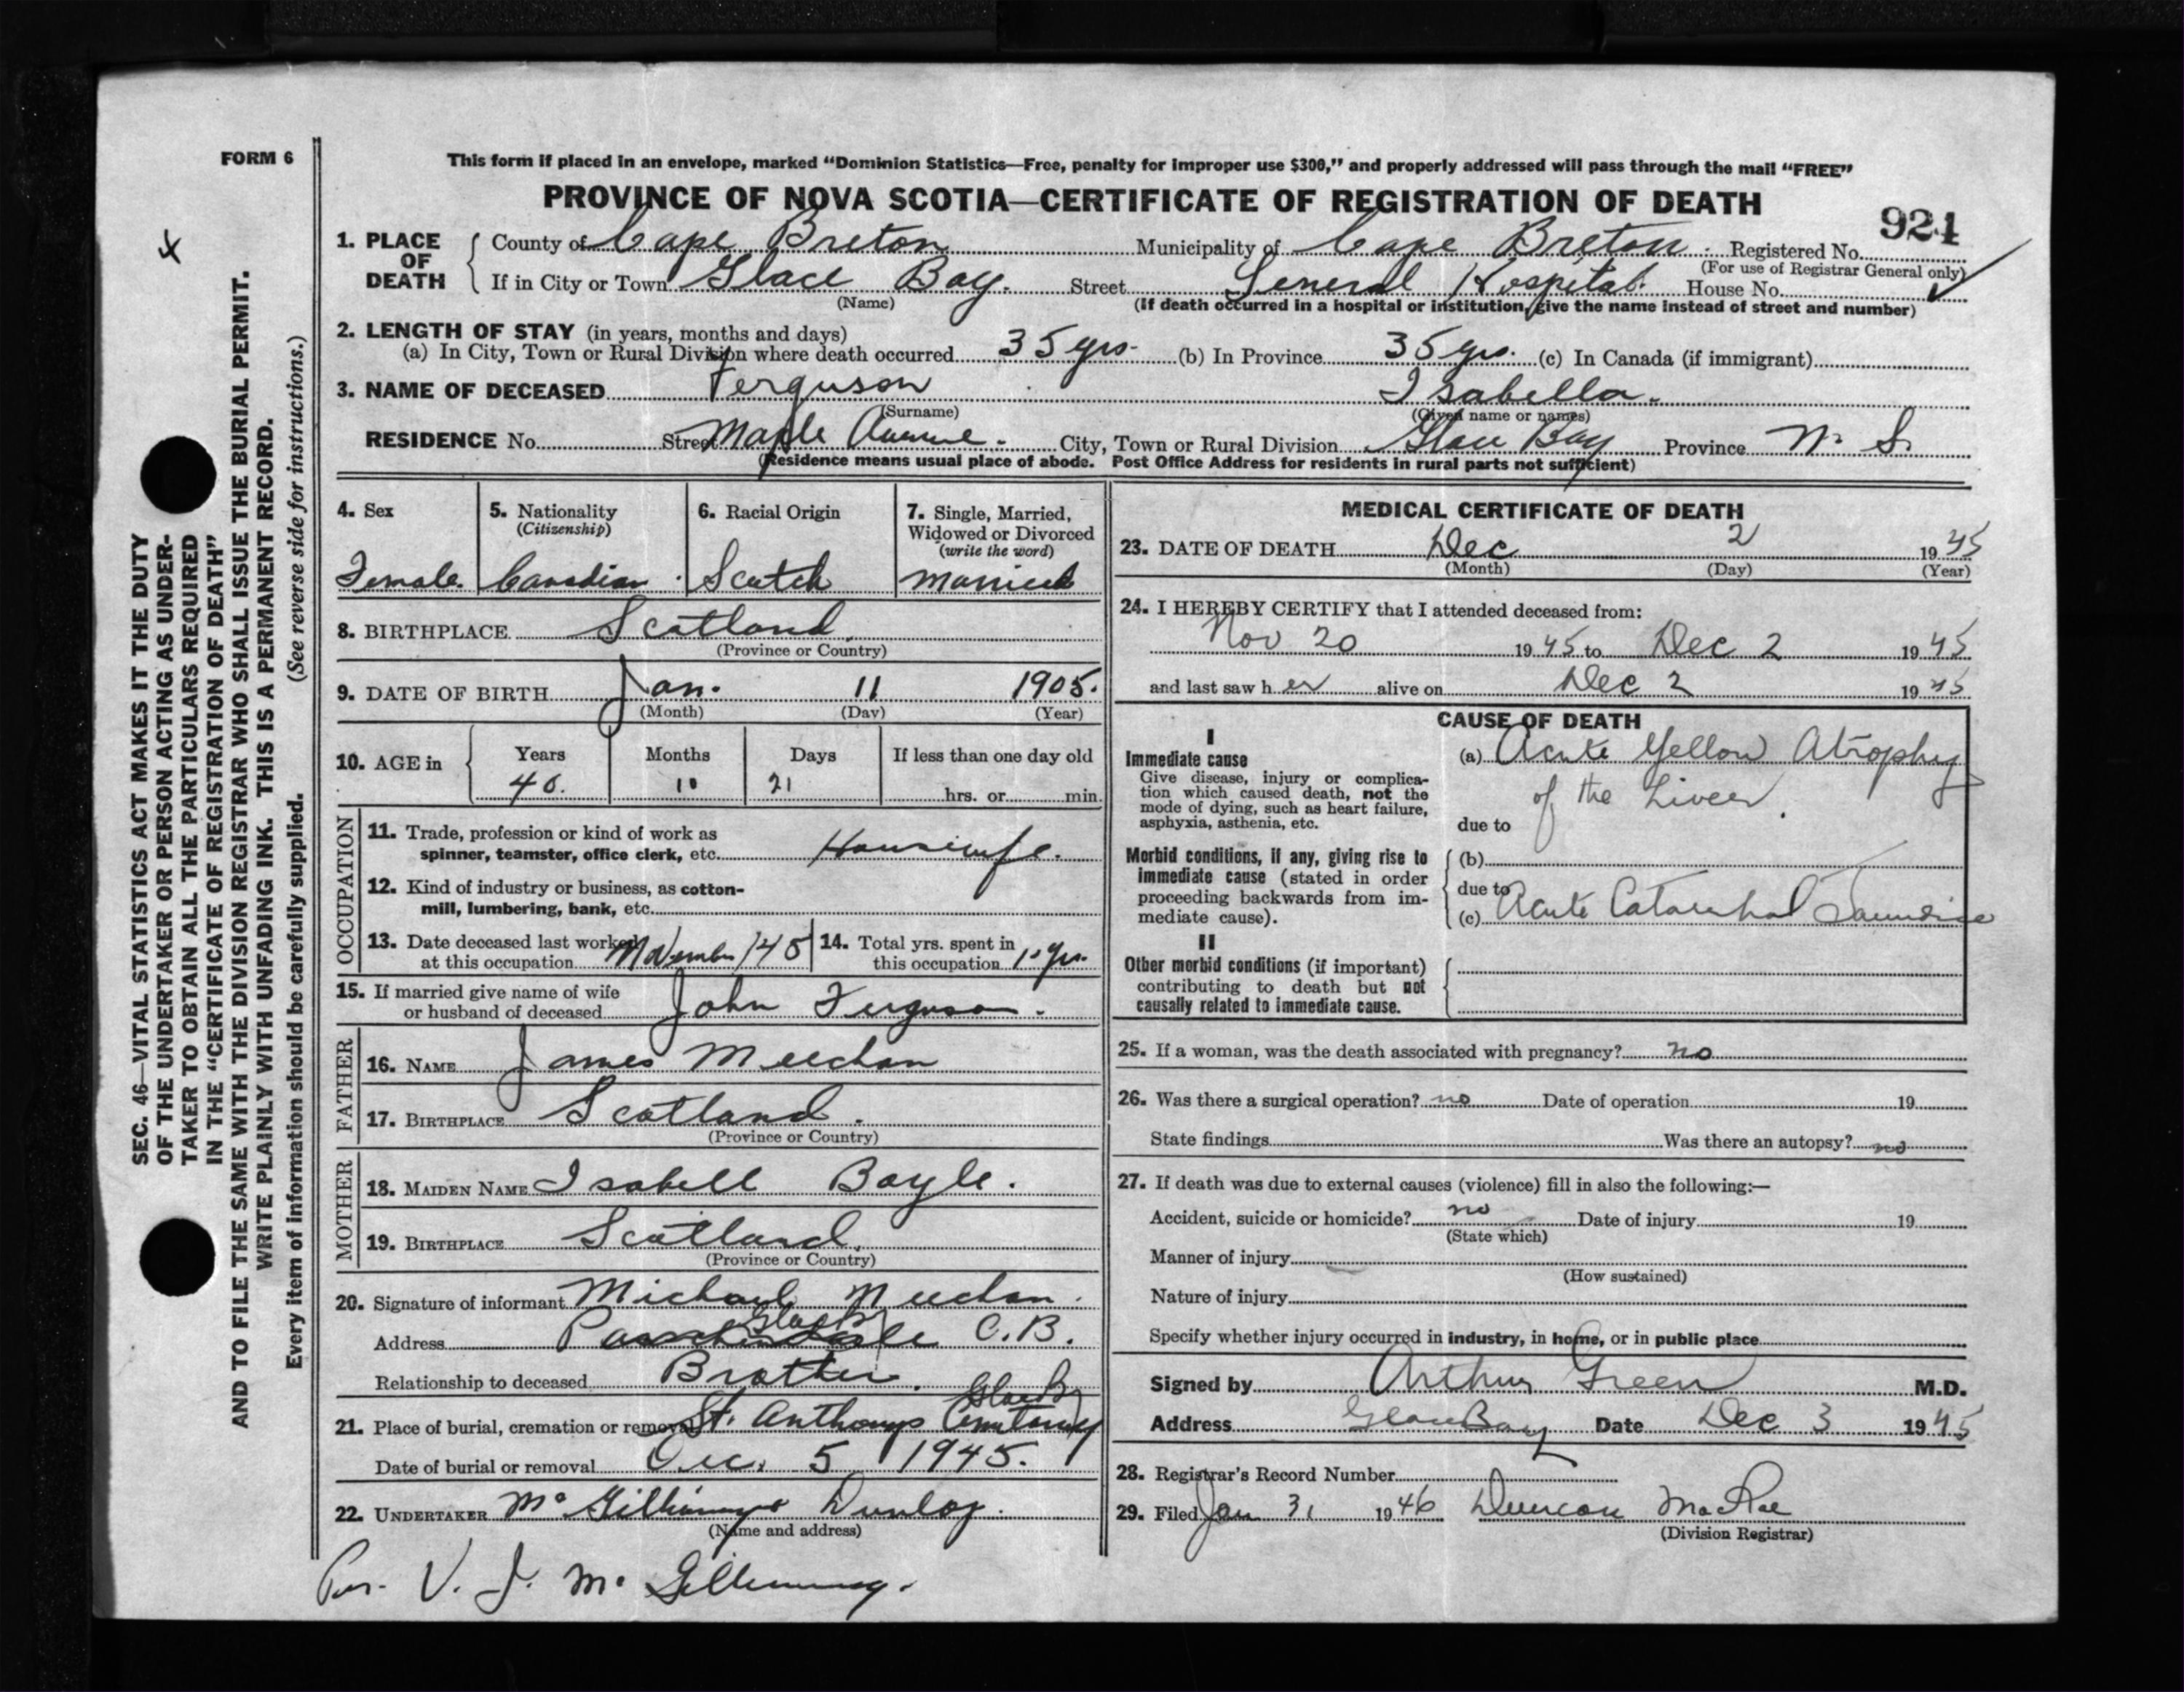 FORM 6
This form if placed in an envelope, marked "Dominion Statistics—Free, penalty for improper use $300," and properly addressed will pass through the mail "FREE"
PROVINCE OF NOVA SCOTIA—CERTIFICATE OF REGISTRATION OF DEATH
924
1. PLACE OF DEATH County of Cape Breton Municipality of Cape Breton Registered No.
(For use of Registrar General only)
If in City or Town Glace Bay. Street General Hospital. House No.
(Name) (If death occurred in a hospital or institution, give the name instead of street and number)
2. LENGTH OF STAY (in years, months and days)
(a) In City, Town or Rural Division where death occurred 35 yrs. (b) In Province 35 yrs. (c) In Canada (if immigrant)
3. NAME OF DECEASED Ferguson Isabella.
(Surname) (Given name or names)
RESIDENCE No. Street Maple Avenue. City, Town or Rural Division Glace Bay Province N. S.
(Residence means usual place of abode. Post Office Address for residents in rural parts not sufficient)
4. Sex
Female.
5. Nationality
(Citizenship)
Canadian.
6. Racial Origin
Scotch
7. Single, Married,
Widowed or Divorced
(write the word)
Married
8. BIRTHPLACE Scotland.
(Province or Country)
9. DATE OF BIRTH Jan. 11 1905.
(Month) (Day) (Year)
10. AGE in Years Months Days If less than one day old
40. 10 21 hrs. or min.
OCCUPATION
11. Trade, profession or kind of work as
spinner, teamster, office clerk, etc. Housewife.
12. Kind of industry or business, as cotton-
mill, lumbering, bank, etc.
13. Date deceased last worked
at this occupation November/45
14. Total yrs. spent in
this occupation yrs.
15. If married give name of wife
or husband of deceased John Ferguson.
FATHER
16. NAME James Meechan
17. BIRTHPLACE Scotland.
(Province or Country)
MOTHER
18. MAIDEN NAME Isabell Boyle.
19. BIRTHPLACE Scotland.
(Province or Country)
20. Signature of informant Michael Meechan.
Address C.B.
Relationship to deceased Brother.
21. Place of burial, cremation or removal St. Anthonys Cemetery Glace B
Date of burial or removal Dec. 5 1945.
22. UNDERTAKER Dunlop.
(Name and address)
Per. V. J. Mc
MEDICAL CERTIFICATE OF DEATH
23. DATE OF DEATH Dec 2 1945
(Month) (Day) (Year)
24. I HEREBY CERTIFY that I attended deceased from:
Nov 20 1945 to Dec 2 1945
and last saw her alive on Dec 2 1945
CAUSE OF DEATH
I
Immediate cause
Give disease, injury or complica-
tion which caused death, not the
mode of dying, such as heart failure,
asphyxia, asthenia, etc.
(a) Acute Yellow Atrophy
of the Liver.
due to
Morbid conditions, if any, giving rise to
immediate cause (stated in order
proceeding backwards from im-
mediate cause).
(b)
due to
(c) Acute Catarrhal Jaundice
II
Other morbid conditions (if important)
contributing to death but not
causally related to immediate cause.
25. If a woman, was the death associated with pregnancy? no
26. Was there a surgical operation? no Date of operation 19
State findings Was there an autopsy? no
27. If death was due to external causes (violence) fill in also the following:—
Accident, suicide or homicide? no Date of injury 19
(State which)
Manner of injury
(How sustained)
Nature of injury
Specify whether injury occurred in industry, in home, or in public place
Signed by Arthur Green M.D.
Address Glace Bay Date Dec 3 1945
28. Registrar's Record Number
29. Filed Jan 31 1946 Duncan MacRae
(Division Registrar)
SEC. 46—VITAL STATISTICS ACT MAKES IT THE DUTY
OF THE UNDERTAKER OR PERSON ACTING AS UNDER-
TAKER TO OBTAIN ALL THE PARTICULARS REQUIRED
IN THE "CERTIFICATE OF REGISTRATION OF DEATH"
AND TO FILE THE SAME WITH THE DIVISION REGISTRAR WHO SHALL ISSUE THE BURIAL PERMIT.
WRITE PLAINLY WITH UNFADING INK. THIS IS A PERMANENT RECORD.
Every item of information should be carefully supplied. (See reverse side for instructions.)